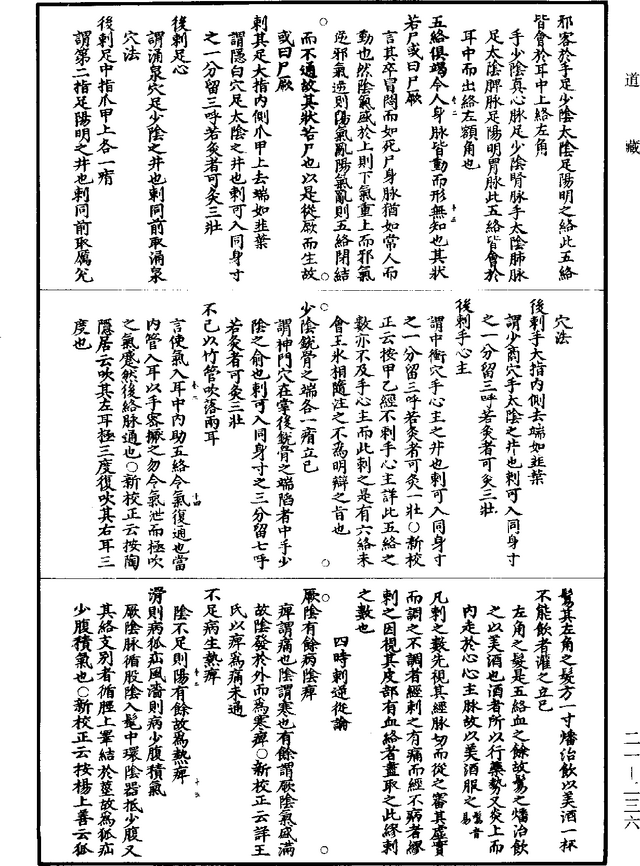 道藏
邪客於手足少陰太陰足陽明之絡此五絡
皆會於耳中上絡左角
手少陰真心脉足少陰腎脉手太陰肺脉
足太陰脾脉足陽明胃脉此五絡皆會於
耳中而出絡左額角也
五絡俱竭令人身脉皆動而形無知也其狀
若尸或曰尸厥
言其卒冒悶而如死尸身脉猶如常人而
動也然陰氣盛於上則下氣重上而邪氣
逆邪氣逆則陽氣亂陽氣亂則五絡閉結
而不通故其狀若尸也以是從厥而生故
或曰尸厥
刺其足大指内側爪甲上去端如韭葉
謂隱白穴足太陰之井也刺可入同身寸
之一分留三呼若灸者可灸三壯
後刺足心
謂涌泉穴足少陰之井也刺同前取涌泉
穴法
後刺足中指爪甲上各一痏
謂第二指足陽明之井也刺同前取厲兊
穴法
後刺手大指内側去端如韭葉
謂少商穴手太陰之井也刺可入同身寸
之一分留三呼若灸者可灸三壯
後刺手心主
謂中衝穴手心主之井也刺可入同身寸
之一分留三呼若灸者可灸一壯○新校
正云按甲乙經不刺手心主詳此五絡之
數亦不及手心主而此刺之是有六絡未
會王冰相隨注之不為明辯之旨也
少陰銳骨之端各一痏立已
謂神門穴在掌後銳骨之端陷者中手少
陰之俞也刺可入同身寸之三分留七呼
若灸者可灸三壯
不已以竹管吹落兩耳
言使氣入耳中内助五絡令氣復通也當
内管入耳以手密擫之勿令氣泄而極吹
之氣蹙然後絡脉通也○新校正云按陶
隱居云吹其左耳極三度復吹其右耳三
度也
鬄其左角之髮方一寸燔治飲以美酒一杯
不能飲者灌之立已
左角之髮是五絡血之餘故鬄之燔治飲
之以美酒也酒者所以行藥勢又炎上而
内走於心心主脉故以美酒服之
凡刺之數先視其經脉切而從之審其虛實
而調之不調者經刺之有痛而經不病者繆
刺之因視其皮部有血絡者盡取之此繆刺
之數也
四時刺逆從論
厥陰有餘病陰痺
痺謂痛也陰謂寒也有餘謂厥陰氣盛滿
故陰發於外而為寒痺○新校正云詳王
氏以痺為痛未通
不足病生熱痺
陰不足則陽有餘故為熱痺
滑則病狐疝風濇則病少腹積氣
厥陰脉循股陰入髦中環陰器抵少腹又
其絡支别者循脛上睪結於莖故為狐疝
少腹積氣也○新校正云按楊上善云狐
二一－二三六